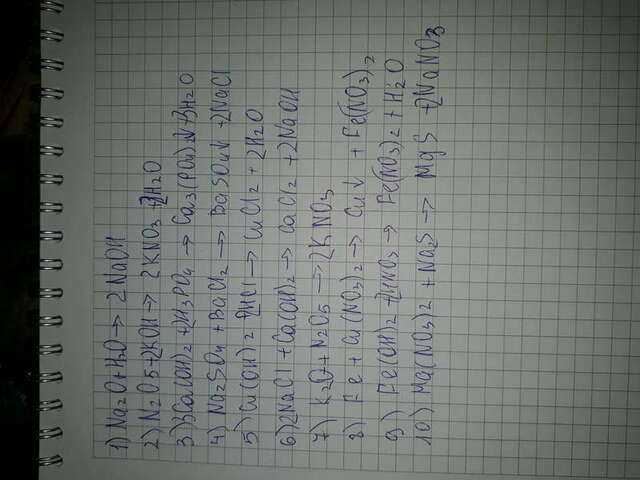 1) Na2O+H2O→ 2NaOH
2) N2O5+2KOH→ 2KNO3 +H2O
3) 3Ca(OH)2 +2H3PO4 → Ca3(PO4)2↓+3H2O
4) Na2SO4 +BaCl2 → BaSO4↓ +2NaCl
5) Cu(OH)2 2HCl→ CuCl2 + 2H2O
6) 2NaCl +Ca(OH)2→ CaCl2 +2NaOH
7) K2O+N2O5 →2KNO3
8) Fe + Cu(NO3)2→ Cu↓ + Fe(NO3)2
9) Fe(OH)2 +2HNO3 → Fe(NO3)2 + H2O
10) Ma(NO3)2 +Na2S → MgS +2NaNO3